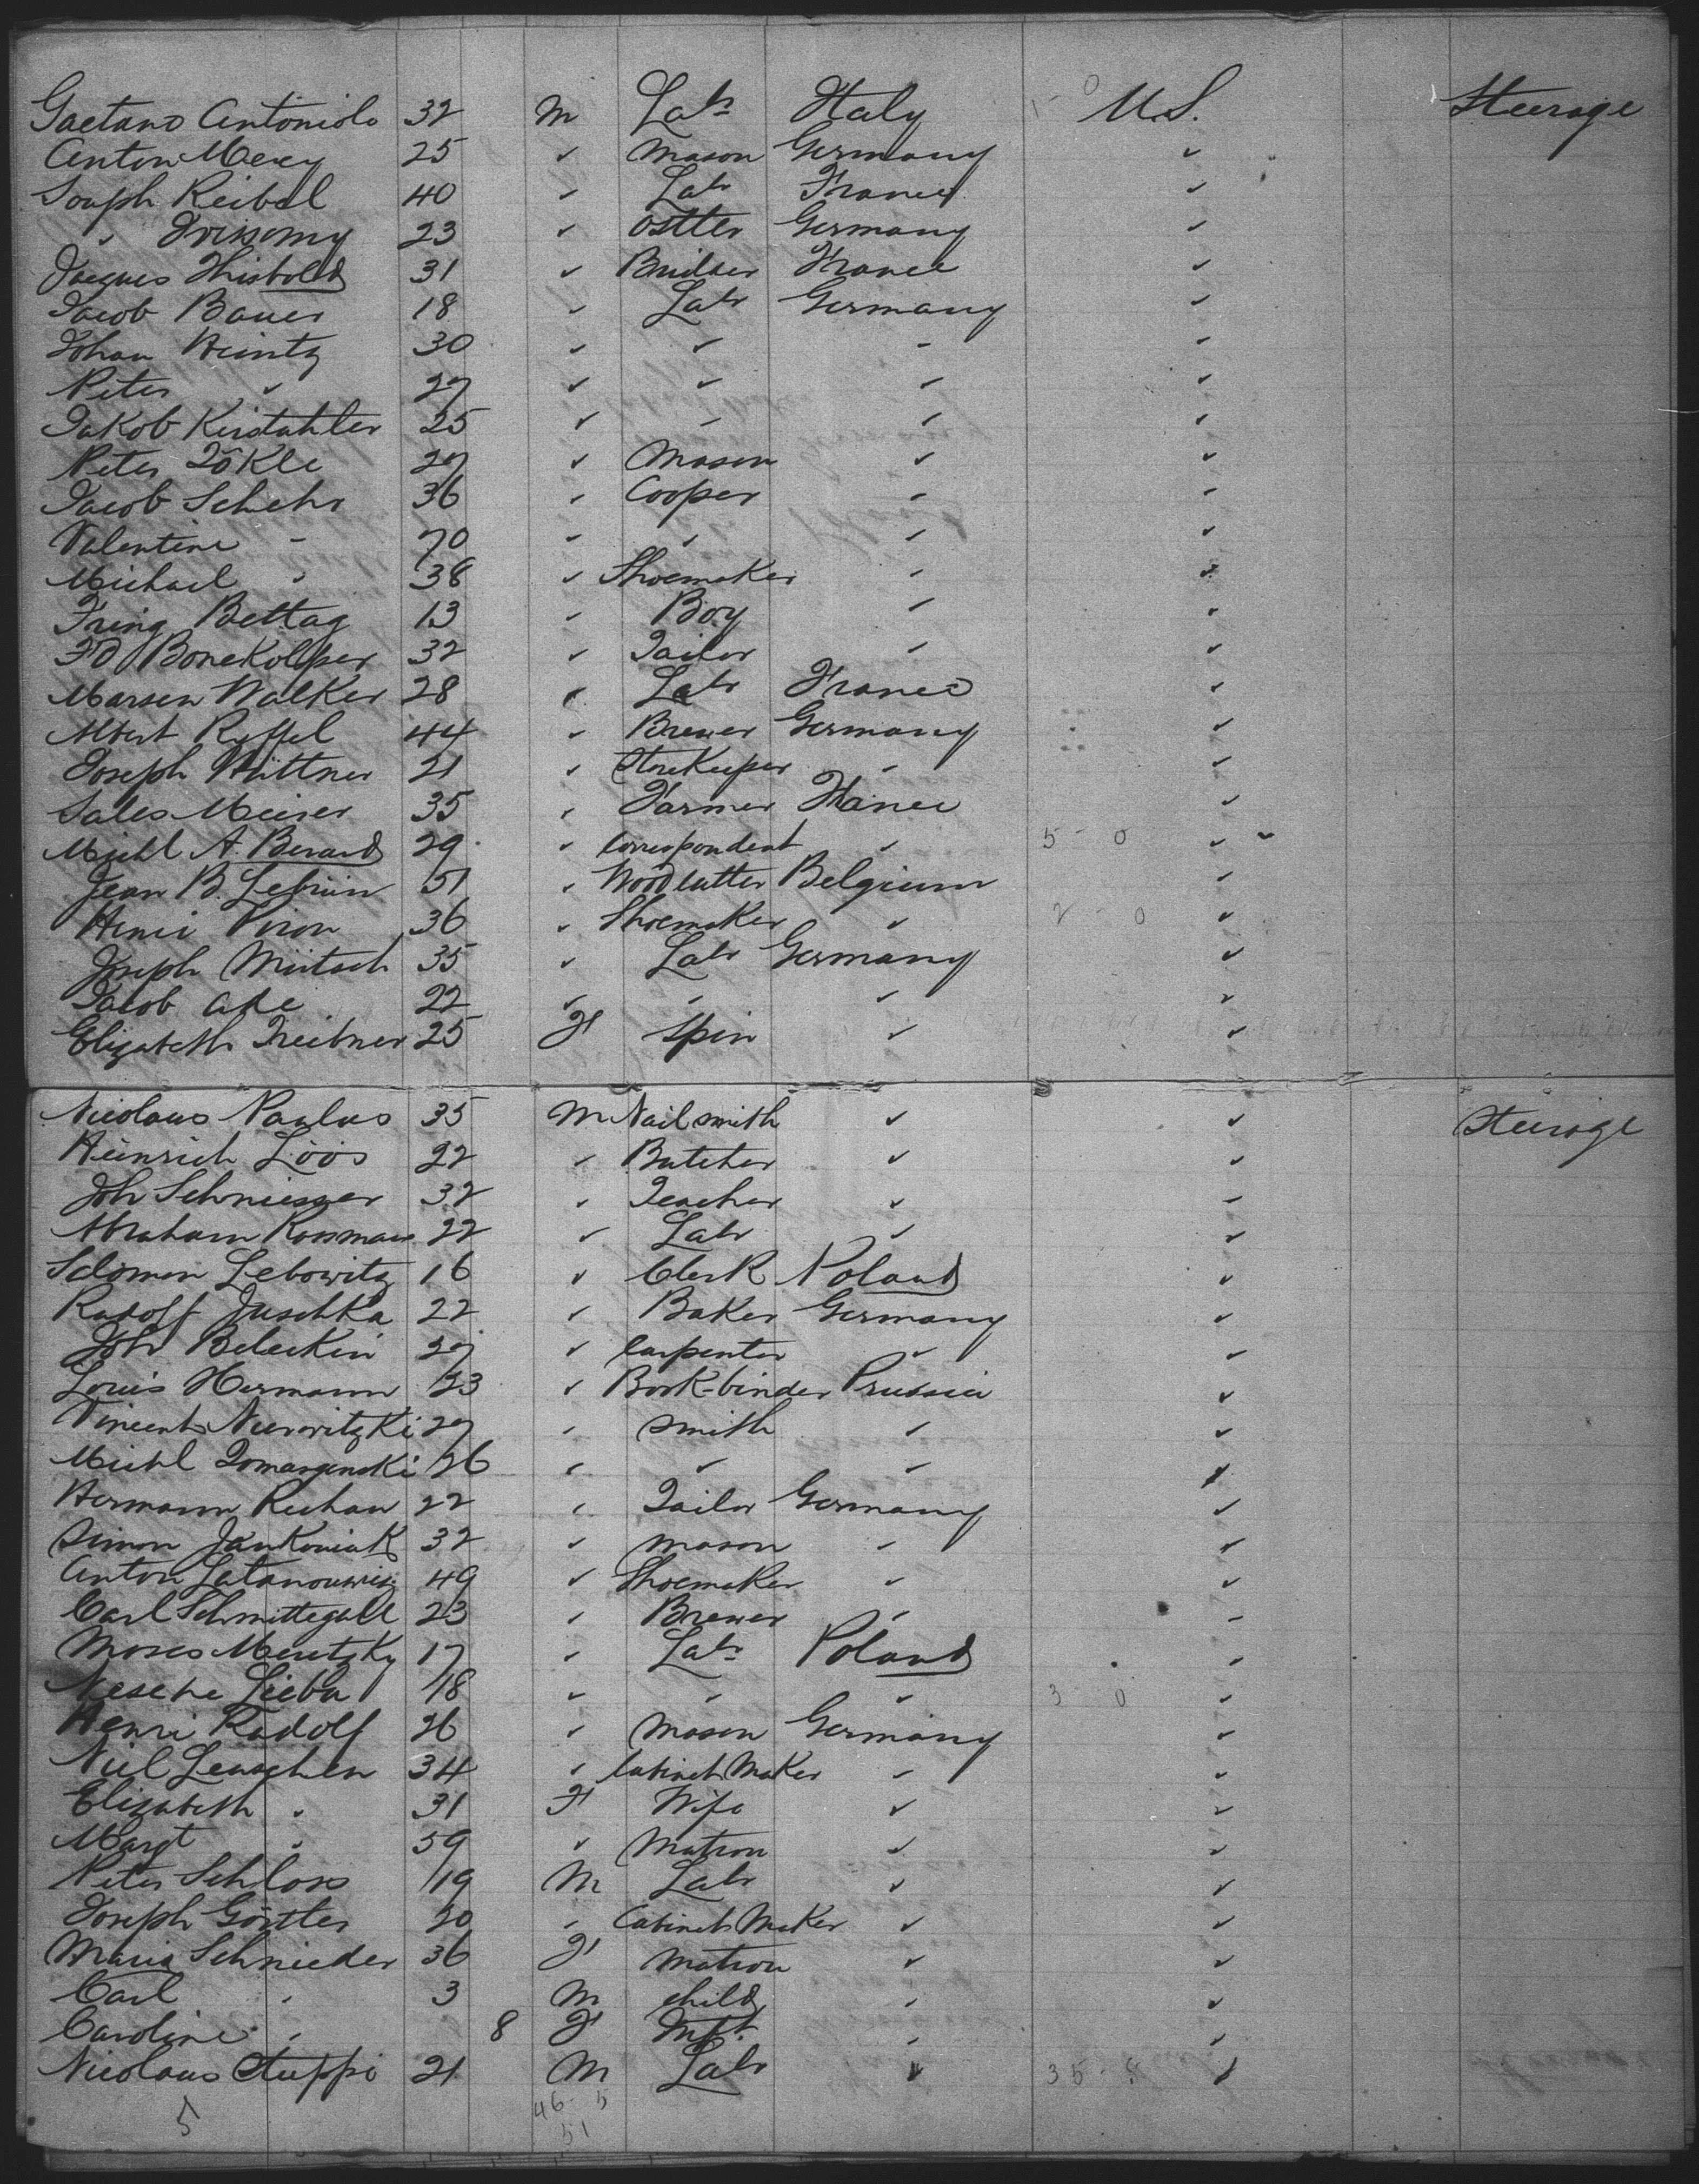 Gaetano Antoniolo 32 M Labr Italy U.S. Steerage
Anton Mexy 25 " Mason Germany "
Joseph Reibel 40 " Labr France "
" 23 " Ostler Germany "
Jacques 31 " France "
Jacob Bauer 18 " Labr Germany "
Johan Heintz 30 " " " "
Peter " 27 " " " "
Jakob Kirstahler 25 " " " "
Peter 27 " Mason " "
Jacob Schehr 36 " Cooper " "
Valentine " 70 " " " "
Michael " 38 " Shoemaker " "
Bettag 13 " Boy " "
Fd Bonekolper 32 " Tailor " "
Marsen Walker 28 " Labr France "
Albert Reffel 44 " Brewer Germany "
Joseph Hüttner 21 " Storekeeper " "
Sales Meirer 35 " Farmer France "
Michl A. Berard 29 " Correspondent " 5 - 0 "
Jean B. Lebrun 51 " Wood cutter Belgium "
Henri Piron 36 " Shoemaker " 2 - 0 "
Joseph Müitsch 35 " Labr Germany "
Jacob 22 " " " "
Elizabeth Treibner 25 F Spin " "
Nicolaus Paulus 35 M Nail smith " " Steerage
Heinrich Löös 22 " Butcher " "
Joh Schniesser 32 " Teacher " "
Abraham Rossman 22 " Labr " "
Solomon Lebowitz 16 " Clerk Poland "
Rudolf Juschka 22 " Baker Germany "
Joh Beleckin 27 " Carpenter " "
Louis Hermann 23 " Book-binder Prussia "
Vincent Nierwitzki 27 " Smith " "
Michl 26 " " " "
Hermann Rechan 22 " Tailor Germany "
Simon Jankoniak 32 " Mason " "
Anton 49 " Shoemaker " "
Carl Schmittegall 23 " Brewer " "
Moses Meretzky 17 " Labr Poland "
Nesche Lieba 18 " " " 3 0 "
Henri Rudolf 26 " Mason Germany "
Niel Leuschen 34 " Cabinet Maker " "
Elizabeth " 31 F Wife " "
Margt " 59 " Matron " "
Peter Schloss 19 M Labr " "
Joseph Görtler 20 " Cabinet Maker " "
Maria Schnieder 36 F Matron " "
Carl " 3 M child " "
Caroline " 8 F Inft. " "
Nicolaus Stuppi 21 M Labr " 35 - 8 "
5 46 - 5
51